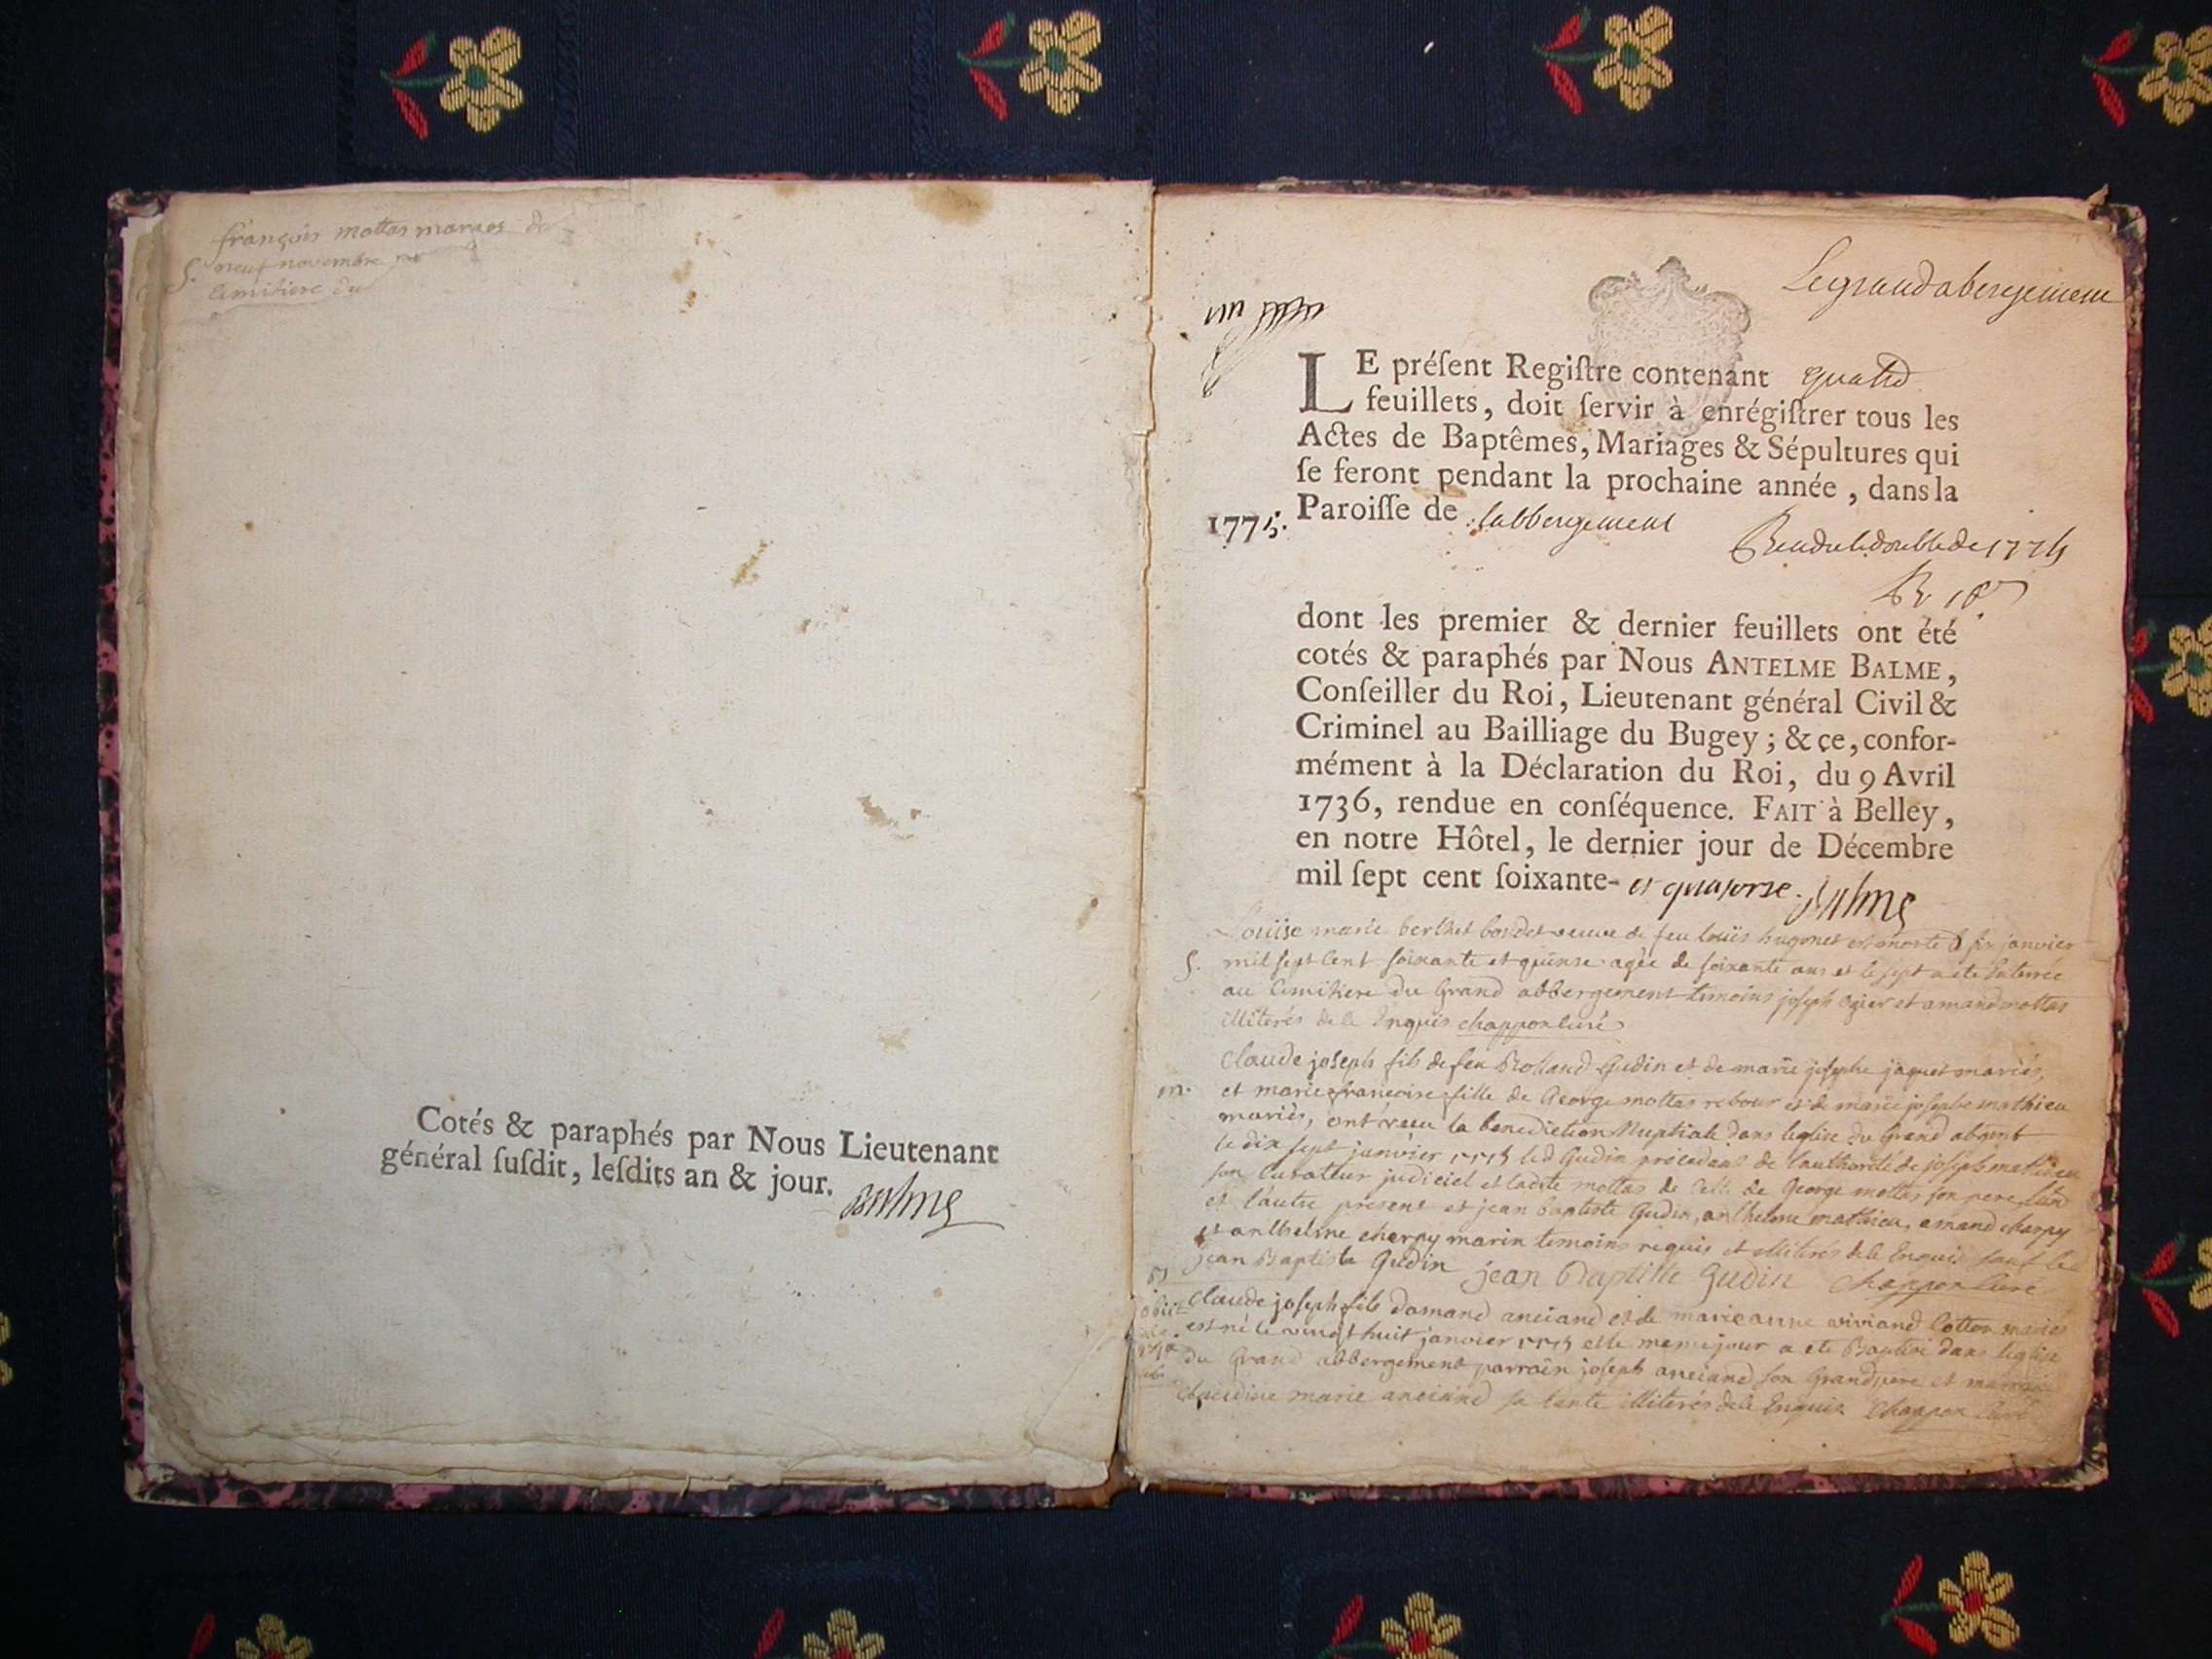 françois mottas marges
S. neuf novembre
Cemitiere du
Cotés & paraphés par Nous Lieutenant
général ſuſdit, leſdits an & jour. Balme
Le grand abergement
un
LE préſent Regiſtre contenant quatre
feuillets, doit ſervir à enrégiſtrer tous les
Actes de Baptêmes, Mariages & Sépultures qui
ſe feront pendant la prochaine année, dans la
1775. Paroiſſe de labbergement
Rendu le double de 1774
dont les premier & dernier feuillets ont été
cotés & paraphés par Nous ANTELME BALME,
Conſeiller du Roi, Lieutenant général Civil &
Criminel au Bailliage du Bugey; & ce, confor-
mément à la Déclaration du Roi, du 9 Avril
1736, rendue en conſéquence. FAIT à Belley,
en notre Hôtel, le dernier jour de Décembre
mil ſept cent ſoixante- et quatorse. Balme
Louise marie berthet bordet veuve de feu louis hugonet est morte le six janvier
S. mil sept cent soixante et quinse agée de soixante ans et le sept a ete Enterrée
au Cemitiere du Grand abbergement temoins joseph ogier et amand mottas
illiterés de ce Enquis chappon curé
Claude joseph fils de feu Rolland Gudin et de marie josephe jaquet mariés,
m. et marie francoise fille de George mottas rebour et de marie josephe mathieu
mariés, ont receu la benediction Nuptiale dans leglise du Grand abgmt
le dix sept janvier 1775 led Gudin procedant de lauthorité de joseph mathieu
son Curateur judiciel et ladite mottas de celle de George mottas son pere, lun
et lautre present et jean baptiste Gudin, anthelme mathieu, amand charpy
et anthelme cherpy marin temoins requis et illiterés de ce Enquis sauf led
jean Baptiste Gudin jean Baptiste Gudin Chappon Curé
Claude joseph fils damand anciand et de marie anne viviand Cotton mariés
est né le vingt huit janvier 1775 et le meme jour a ete Baptisé dans leglise
du Grand abbergement parrain joseph anciand son Grand pere et marraine
Claudine marie anciand sa tante illiterés de ce Enquis Chappon Curé